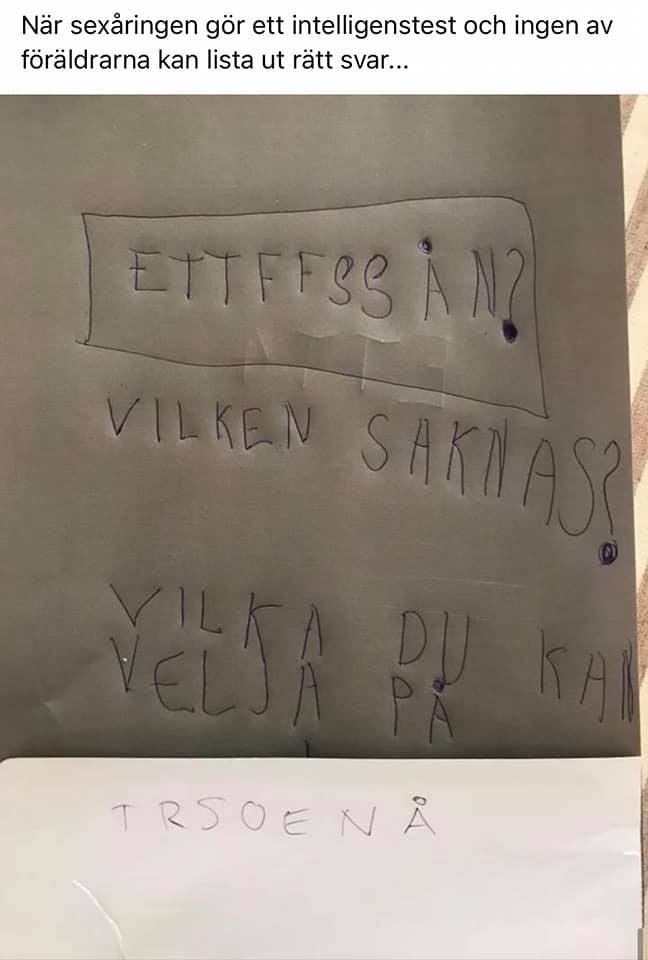 När sexåringen gör ett intelligenstest och ingen av
föräldrarna kan lista ut rätt svar...
ETTFFSSÅN?
VILKEN SAKNAS?
VILKA DU KAN
VELJA PÅ
TRSOENÅ